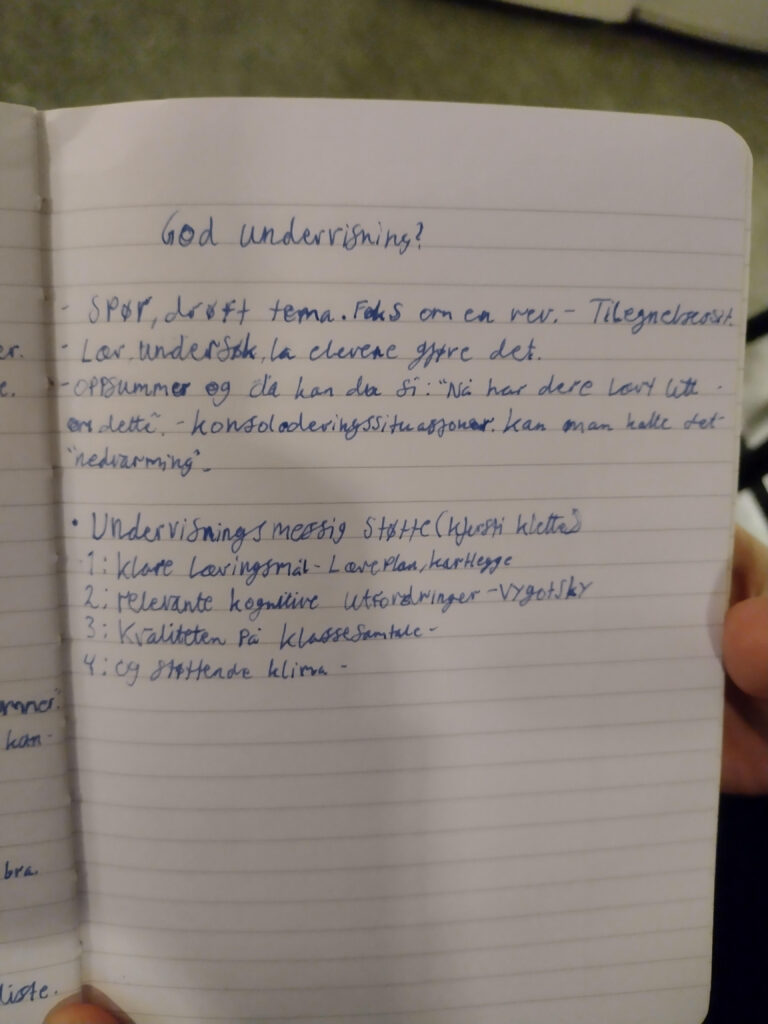 God undervisning?
- Spør, drøft tema. Foks om en rev. - Tilegnelsessit.
- Lær, undersøk, la elevene gjøre det.
- Oppsummer og da kan du si: "Nå har dere lært litt
om dette". - konsoloderingssituasjoner. kan man kalle det
"nedvarming".
• Undervisningsmessig støtte (kjersti klette)
1: klare læringsmål - Læreplan, kartlegge
2: relevante kognitive utfordringer - Vygotsky
3: Kvaliteten på klassesamtale -
4: og støttende klima -
er.
e.
ummer."
kan -
bra.
liste.